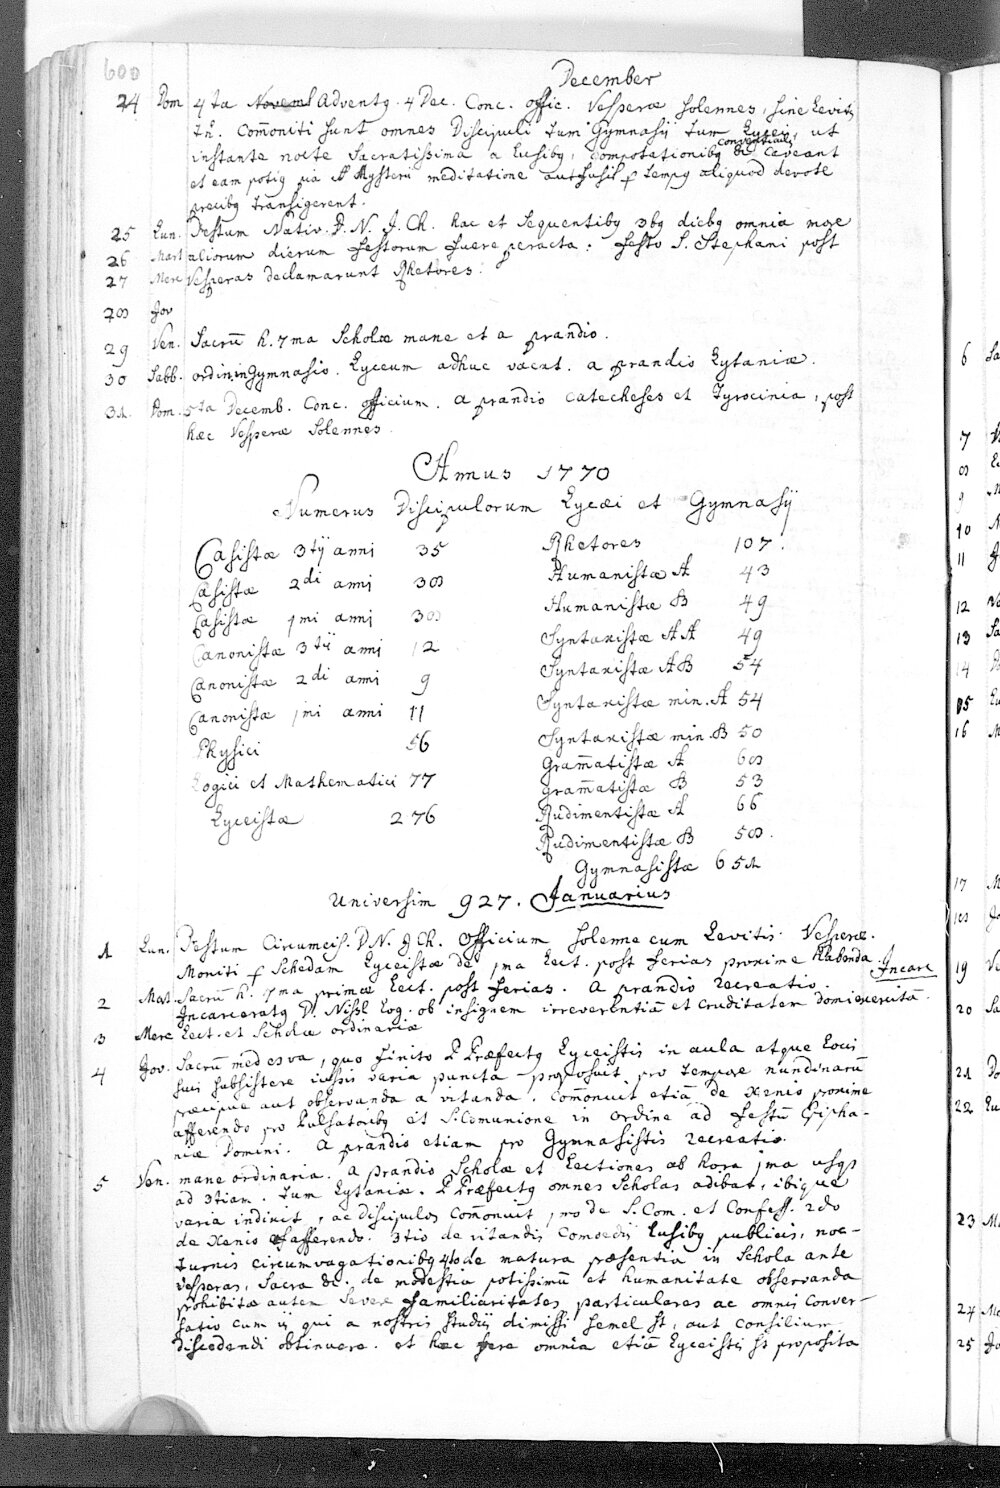 600
December
24 Dom 4ta Novemb Adventq. 4 Dec. Conc. offic. Vesperæ solennes, sine Levitis
In. Com̄oniti sunt omnes Discipuli tum Gymnasij tum Lycei, ut
instante nocte Sacratissima a lusibq, compotationibq conventiculis &c caveant
et eam potiq pia Mysterii meditatione tempq aliquod devote
precibq transigerent.
25 Lun. Festum Nativ. D. N. J. Ch. hac et sequentibq 3bq diebq omnia more
26 Mart aliorum dierum festorum fuere peracta. festo S. Stephani post
27 Merc Vesperas declamarunt Rhetores.
28 Jov
29 Ven. Sacrū h. 7ma Scholæ mane et a prandio.
30 Sabb. ordin. in Gymnasio. Lyceum adhuc vacat. a prandio Lytaniæ.
31. Dom. 5ta Decemb. Conc. officium. a prandio catecheses et Tyrocinia, post
hæc Vesperæ Solennes.
Annus 1770
Numerus Discipulorum Lycæi et Gymnasij
Casistæ 3tij anni 35
Casistæ 2di anni 38
Casistæ 1mi anni 38
Canonistæ 3tij anni 12
Canonistæ 2di anni 9
Canonistæ 1mi anni 11
Physici 56
Logici et Mathematici 77
Lyceistæ 276
Rhetores 107.
Humanistæ A 43
Humanistæ B 49
Syntaxistæ A A 49
Syntaxistæ A B 54
Syntaxistæ min. A 54
Syntaxistæ min. B 50
Gram̄atistæ A 68
Gram̄atistæ B 53
Rudimentistæ A 66
Rudimentistæ B 58.
Gymnasistæ 651
Universim 927. Januarius
1 Lun. Festum Circumcis. D N. J Ch. Officium solenne cum Levitis Vesperæ.
Moniti p Schedam Lyceistæ de 1ma Lect. post ferias proxime habenda.
2 Mart. Sacrū h. 7ma primæ Lect. post ferias. A prandio recreatio. Incarc
Incarceratq D. Nissl Log. ob insignem irreverentiā et cruditatem domi exercitā.
3 Merc Lect. et Scholæ ordinariæ
4 Jov. Sacrū med 8va, quo finito P Præfectq Lyceistis in aula atque loci
sui subsistere iussis varia puncta proposuit pro tempore nundinarū
præcipue aut observanda a vitanda. Com̄onuit etiā de Xenio proxime
afferendo pro Pulsatoribq et S. Comunione in ordine ad Festū Epipha-
niæ Domini. A prandio etiam pro Gymnasistis recreatio.
5 Ven. mane ordinaria. A prandio Scholæ et Lectiones ab hora 1ma usq
ad 3tiam. Tum Lytaniæ. P Præfectq omnes Scholas adibat, ibique
varia indixit, ac Discipulos Com̄onuit 1mo de S. Com. et Confess. 2do
de Xenio afferendo. 3tio de vitandis Comoedijs lusibq publicis, noc-
turnis circumvagationibq 4to de matura præsentia in Schola ante
vesperas, Sacra &c. de modestia potissimū et humanitate observanda
prohibitæ autem severe familiaritates particulares ac omnis conver-
satio cum ijs qui a nostris studijs dimissi semel st, aut consilium
discedendi obtinuere. et hæc fere omnia etiā Lyceistis st proposita
6 Sa
7
8
9
10
11
12
13
14
15
16
17
18
19
20
21
22
23
24
25